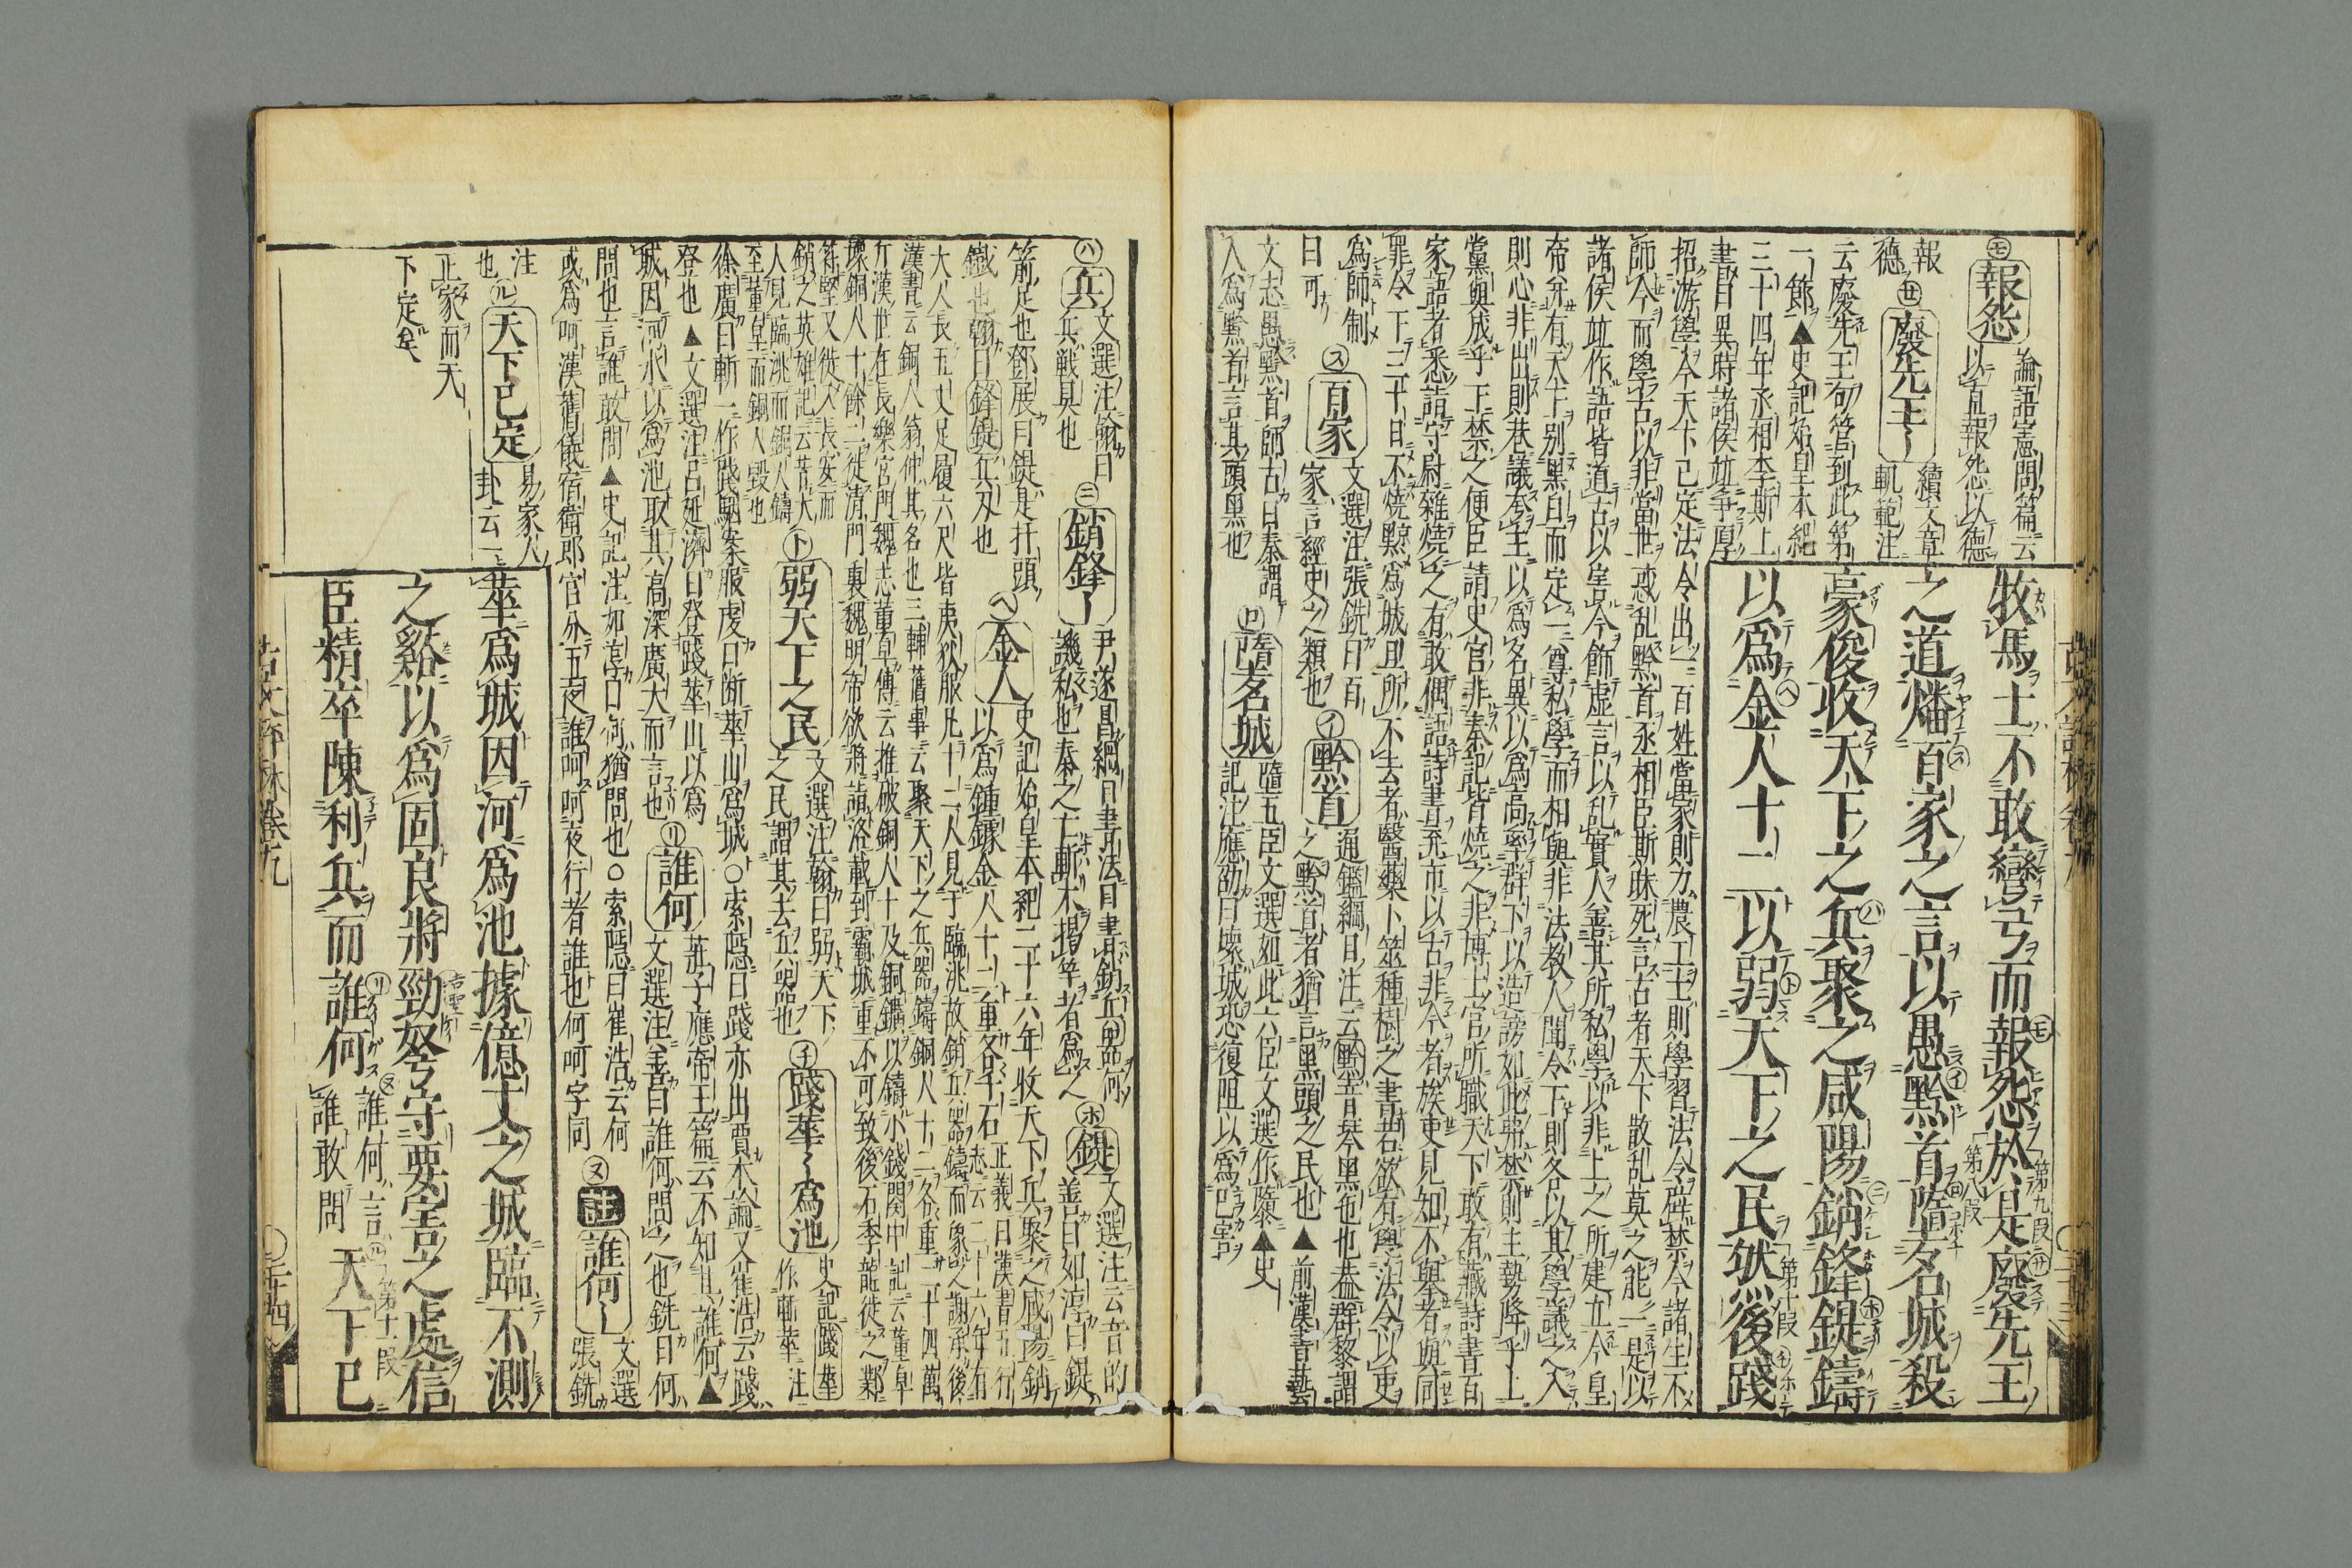 牧馬士不敢彎弓而報怨於是廢先王
之道燔百家之言以愚黔首隳名城殺
豪俊收天下之兵聚之咸陽銷鋒鍉鑄
以爲金人十二以弱天下之民然後踐
報怨
論語憲問篇云
以直報怨以德
報德
廢先王〡
續文章
軌範注
云廢先王句管到此第
一節▲史記始皇本紀
三十四年丞相李斯上
書曰異時諸侯並爭厚
招游學今天下已定法令出一百姓當家則力農工士則學習法令辟禁今諸生不
師今而學古以非當世惑乱黔首丞相臣斯昧死言古者天下散乱莫之能一是以
諸侯並作語皆道古以害今飾虚言以乱實人善其所私學以非上之所建立今皇
帝并有天下别黒白而定一尊私學而相與非法教人聞令下則各以其學議之入
則心非出則巷議夸主以爲名異以爲高率群下以造謗如此弗禁則主勢降乎上
黨與成乎下禁之便臣請史官非秦記皆焼之非博士官所職天下敢有藏詩書百
家語者悉詣守尉雜焼之有敢偶語詩書弃市以古非今者族吏見知不舉者與同
罪令下三十日不焼黥爲城旦所不去者醫藥卜筮種樹之書若欲有學法令以吏
爲師制
曰可
百家
文選注張銑曰百
家言經史之類也
黔首
通鑑綱目注云黔音琴黒色也蓋群黎謂
之黔首者猶言黒頭之民也▲前漢書藝
文志愚黔首師古曰秦謂
人爲黔首言其頭黒也
隳名城
隳五臣文選如此六臣文選作隳▲史
記注應劭曰壊城恐復阻以爲已害
兵
文選注翰曰
兵戦具也
銷鋒〡
尹遂昌綱目書法曰書銷兵器何
譏私也秦之亡斬木掲竿者爲之
鍉
文選注云音的
善曰如淳曰鍉
箭足也鄧展曰鍉是扞頭
鐵也翰曰鋒鍉兵刃也
金人
史記始皇本紀二十六年收天下兵聚之咸陽銷
以爲鍾鐻金人十二重各千石
正義曰漢書五行
志云二十六年有
大人長五丈足履六尺皆夷狄服凡十二人見于臨洮故銷兵器鑄而象之謝承後
漢書云銅人翁仲其名也三輔舊事云聚天下之兵器鑄銅人十二各重二十四萬
斤漢世在長樂宮門魏志董卓傳云推破銅人十及銅鐻以鑄小錢関中記云董卓
壊銅人十餘二徙清門裏魏明帝欲將詣洛載到霸城重不可致後石季龍徙之鄴
苻堅又徙入長安而
銷之英雄記云昔大
人見臨洮而銅人鑄
至董卓而銅人毀也
弱天下之民
文選注翰曰弱天下
之民謂其去兵器也
踐華〡爲池
史記踐華
作斬華注
徐廣曰斬一作踐駰案服虔曰断華山爲城○索隠曰踐亦出賈本論又崔浩云踐
登也▲文選注呂延濟曰登踐華山以爲
城因河水以爲池取其高深廣大而言也
誰何
莊子應帝王篇云不知其誰何▲
文選注善曰誰何問之也銑曰何
問也言誰敢問▲史記注如淳曰何猶問也○索隠曰崔浩云何
或爲呵漢舊儀宿衛郎官分五夜誰呵呵夜行者誰也何呵字同
註
誰何〡
文選
張銑
注
也
天下已定
易家人
卦云一
正家而天
下定矣
華爲城因河爲池據億丈之城臨不測
之谿以爲固良將勁弩守要害之處信
臣精卒陳利兵而誰何
誰何言
誰敢問
天下已
第九段
第八段
第十段
第十一段
古文
卷九
二十四